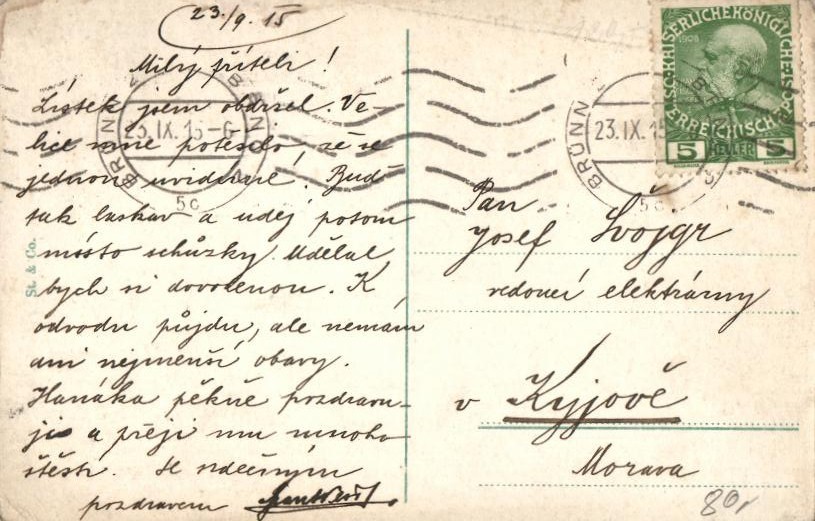 23./9. 15
Milý příteli!
Lístek jsem obdržel. Ve-
lice mne potěšilo, že se
jednou uvidíme! Buď
tak laskav a udej potom
místo schůzky. Udělal
bych si dovolenou. K
odvodu půjdu, ale nemám
ani nejmenší obavy.
Hanáka pěkně pozdravu-
ji a přeji mu mnoho
štěstí. Se srdečným
pozdravem
St. & Co.
BRÜNN
23.IX.15-6
BRÜNN
5c
BRÜNN
23.IX.15
BRÜNN
5c
KAISERLICHE KÖNIGLICHE
ÖSTERREICHISCHE POST
1908
5 HELLER 5
Pan
Josef Švojgr
vedoucí elektrárny
v Kyjově
Morava
80,-